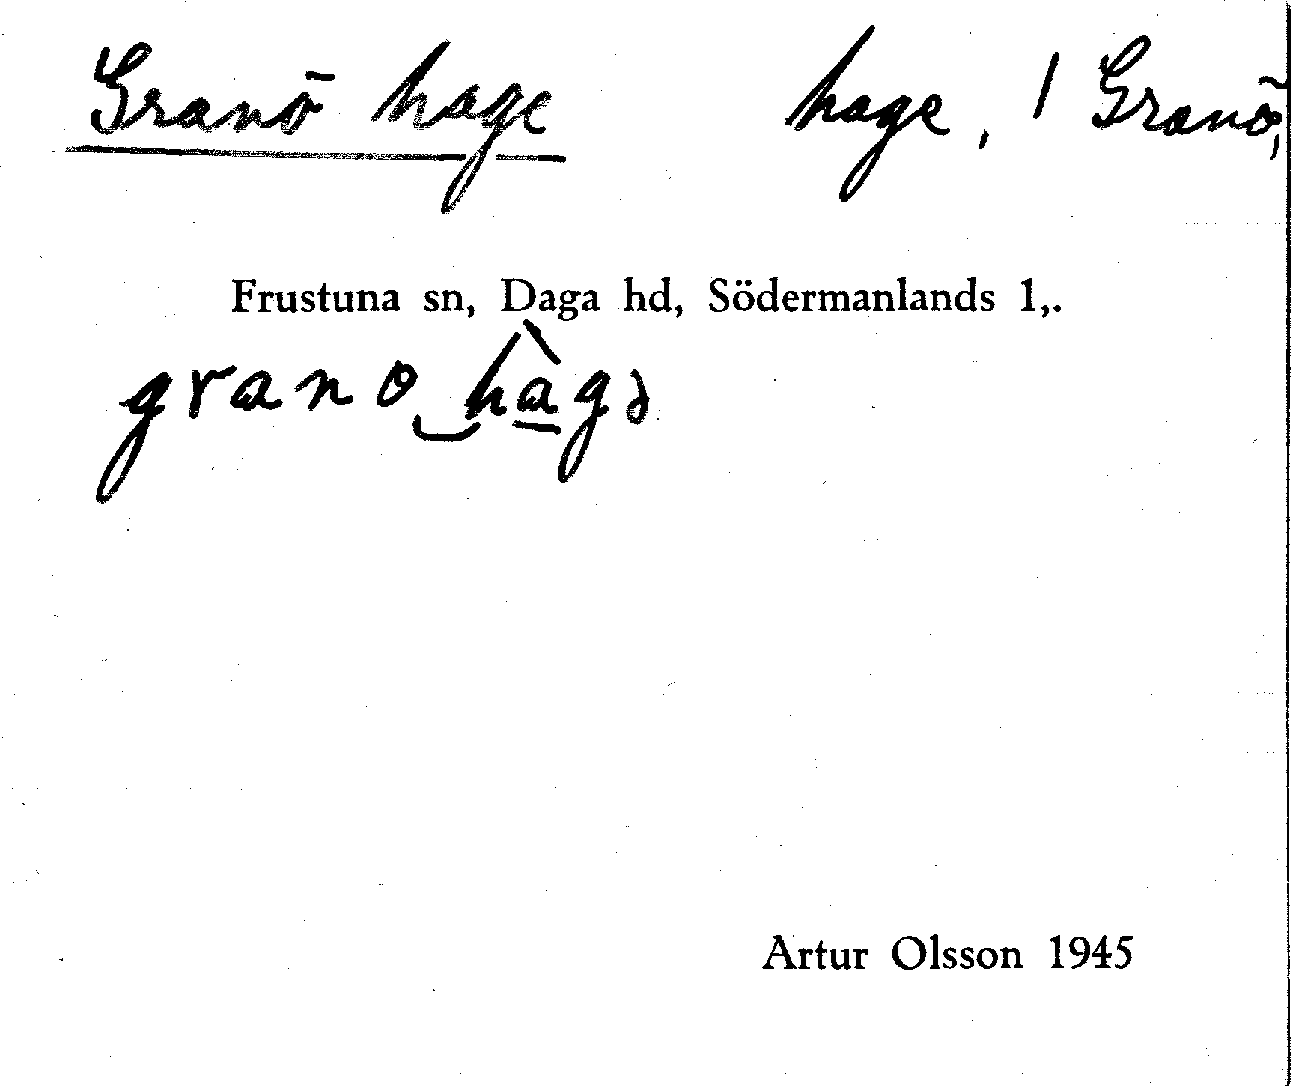 Granö hage hage, 1 Granö,
Frustuna sn, Daga hd, Södermanlands l,.
grano hagə
Artur Olsson 1945